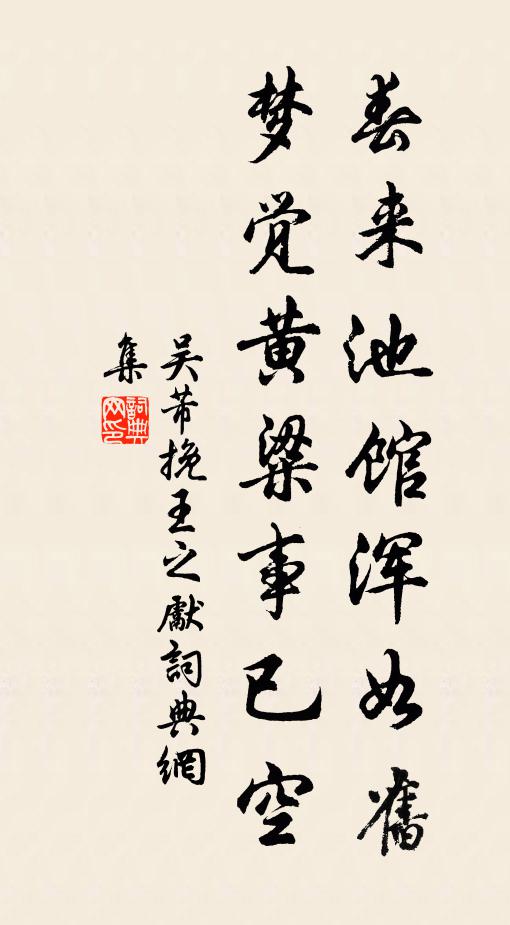 春来池馆浑如舊
梦觉黄粱事已空
吴芾挽王之獻詞典網
集
詞典
网印